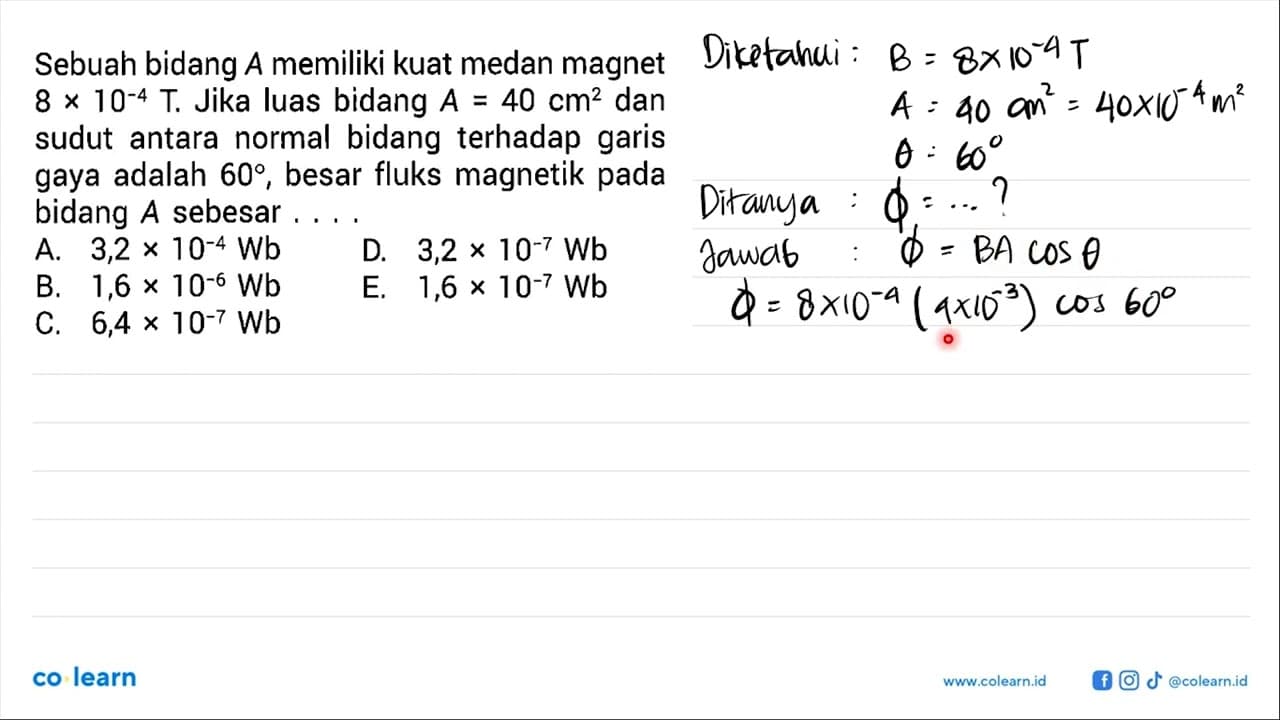 Sebuah bidang A memiliki kuat medan magnet
8 × 10⁻⁴ T. Jika luas bidang A = 40 cm² dan
sudut antara normal bidang terhadap garis
gaya adalah 60°, besar fluks magnetik pada
bidang A sebesar . . . .
A. 3,2 × 10⁻⁴ Wb D. 3,2 × 10⁻⁷ Wb
B. 1,6 × 10⁻⁶ Wb E. 1,6 × 10⁻⁷ Wb
C. 6,4 × 10⁻⁷ Wb
Diketahui : B = 8×10⁻⁴ T
A = 40 cm² = 40×10⁻⁴ m²
θ = 60°
Ditanya : ϕ = ... ?
Jawab : ϕ = BA cos θ
ϕ = 8×10⁻⁴ (4×10⁻³) cos 60°
co learn
www.colearn.id
@colearn.id